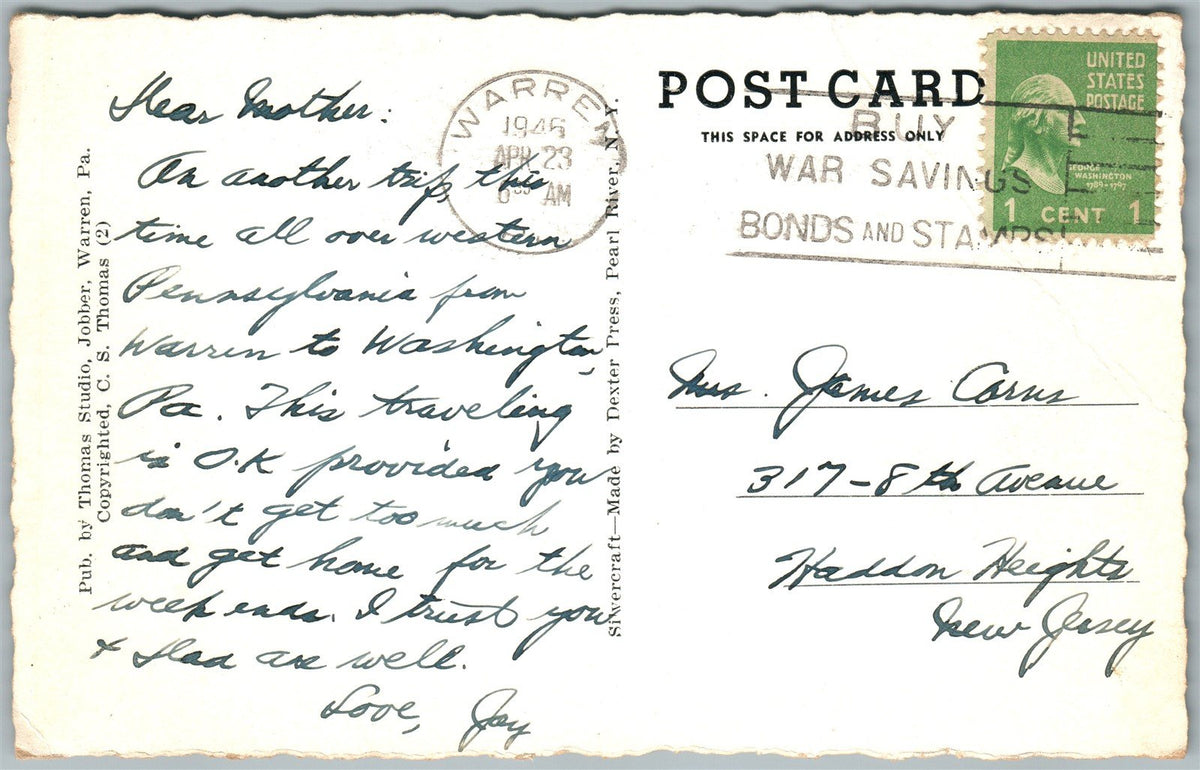 Dear Mother:
On another trip, this
time all over western
Pennsylvania from
Warren to Washington,
Pa. This traveling
is O.K provided you
don't get too much
and get home for the
week ends. I trust you
+ Dad are well.
Love, Jay
Pub. by Thomas Studio, Jobber, Warren, Pa.
Copyrighted, C. S. Thomas (2)
Silvercraft—Made by Dexter Press, Pearl River, N. Y.
WARREN
1946
APR 23
AM
POST CARD
THIS SPACE FOR ADDRESS ONLY
BUY
WAR SAVINGS
BONDS AND STAMPS
UNITED
STATES
POSTAGE
GEORGE
WASHINGTON
1789-1797
1 CENT 1
Mrs. James Corns
317-8th Avenue
Haddon Heights
New Jersey